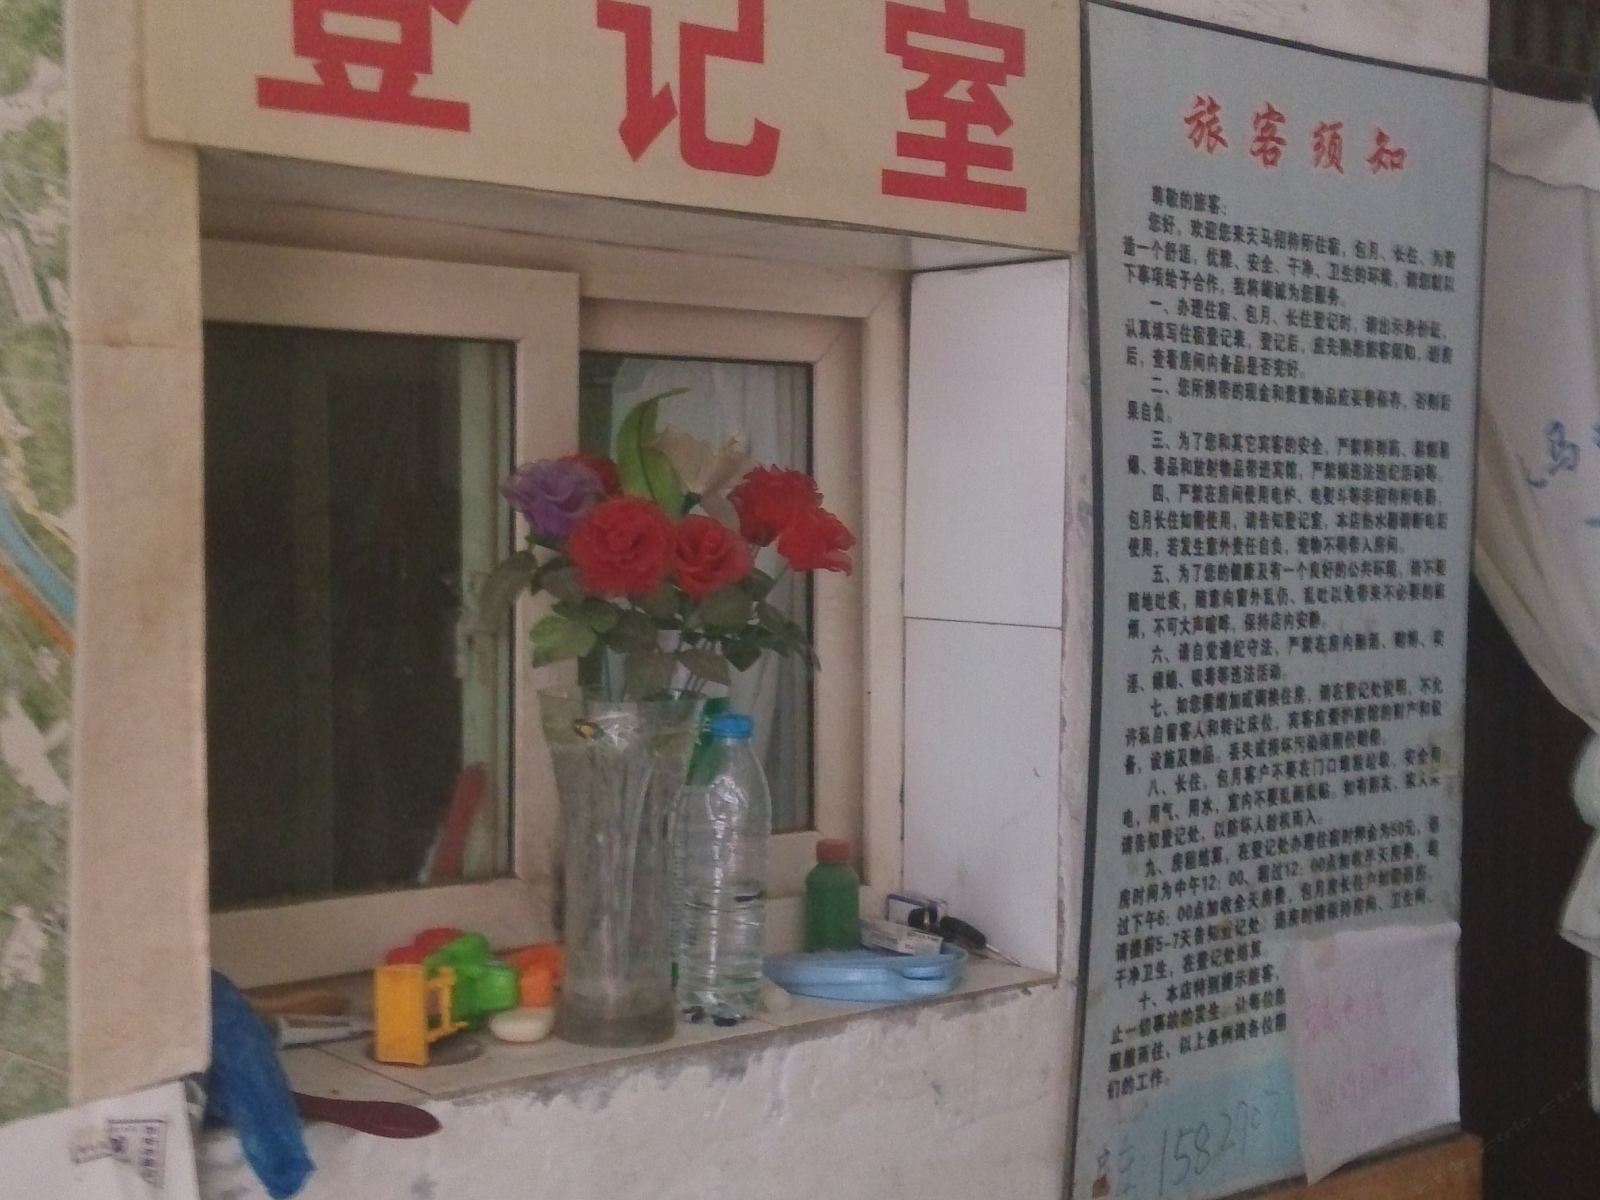 登记室
旅客须知
尊敬的旅客:
您好,欢迎您来天马招待所住宿,包月、长住、为营
造一个舒适,优雅、安全、干净、卫生的环境,请您就以
下事项给予合作,我将竭诚为您服务。
一、办理住宿、包月、长住登记时,请出示身份证,
认真填写住宿登记表,登记后,应先熟悉旅客须知,进房
后,查看房间内备品是否完好。
二、您所携带的现金和贵重物品应妥善保存,否则后
果自负。
三、为了您和其它宾客的安全,严禁将弹药、易燃易
爆、毒品和放射物品带进宾馆,严禁搞违法违纪活动等。
四、严禁在房间使用电炉、电熨斗等非招待所电器,
包月长住如需使用,请告知登记室,本店热水器请断电后
使用,若发生意外责任自负,宠物不得带入房间。
五、为了您的健康及有一个良好的公共环境,请不要
随地吐痰,随意向窗外乱仍、乱吐以免带来不必要的麻
烦,不可大声喧哗,保持店内安静。
六、请自觉遵纪守法,严禁在房内酗酒、赌博、卖
淫、嫖娼、吸毒等违法活动。
七、如您需增加或调换住房,请在登记处说明,不允
许私自留客人和转让床位,宾客应爱护旅馆的财产和设
备,设施及物品。丢失或损坏污染须照价赔偿。
八、长住,包月客户不要在门口堆放垃圾,安全用
电,用气、用水,室内不要乱画乱贴。如有朋友,家人来
请告知登记处,以防坏人趁机而入。
九、房租结算,在登记处办理住宿时押金为50元,退
房时间为中午12:00、超过12:00点加收半天房费,超
过下午6:00点加收全天房费,包月房长住户如需退房,
请提前5-7天告知登记处。退房时请保持房间、卫生间、
干净卫生,在登记处结算。
十、本店特别提示旅客,
止一切事故的发生。让每位旅
愿而住,以上条例请各位
们的工作。
15829
马